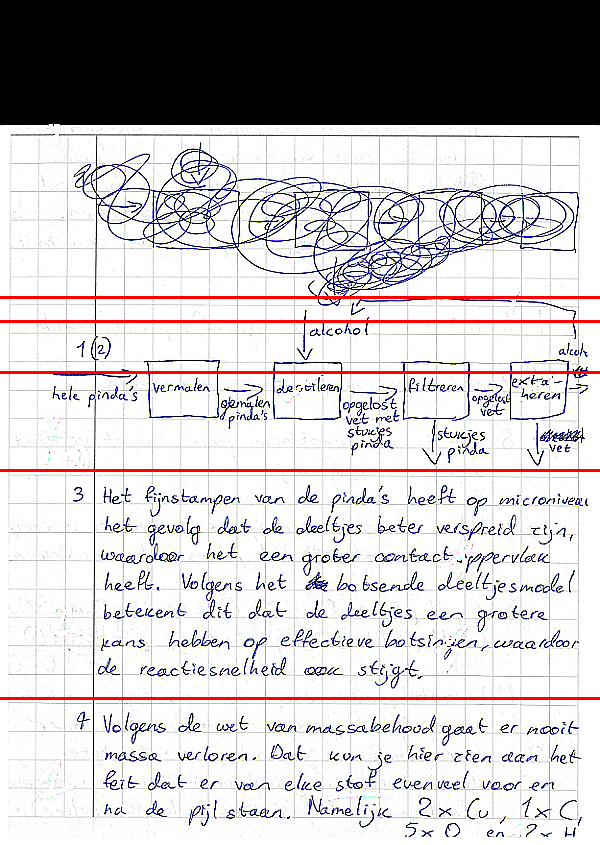 alcohol
1(2)
alcoh
hele pinda's
vermalen
gemalen
pinda's
destileren
opgelost
vet met
stukjes
pinda
filtreren
stukjes
pinda
opgelost
vet
extra-
heren
vet
3 Het fijnstampen van de pinda's heeft op microniveau
het gevolg dat de deeltjes beter verspreid zijn,
waardoor het een groter contact ippervlak
heeft. Volgens het botsende deeltjesmodel
betekent dit dat de deeltjes een grotere
kans hebben op effectieve botsingen, waardoor
de reactiesnelheid stijgt.
4 Volgens de wet van massabehoud gaat er nooit
massa verloren. Dat kun je hier zien aan het
feit dat er van elke stof evenveel voor en
na de pijl staan. Namelijk 2x Cu, 1x C,
5x O en 2x H